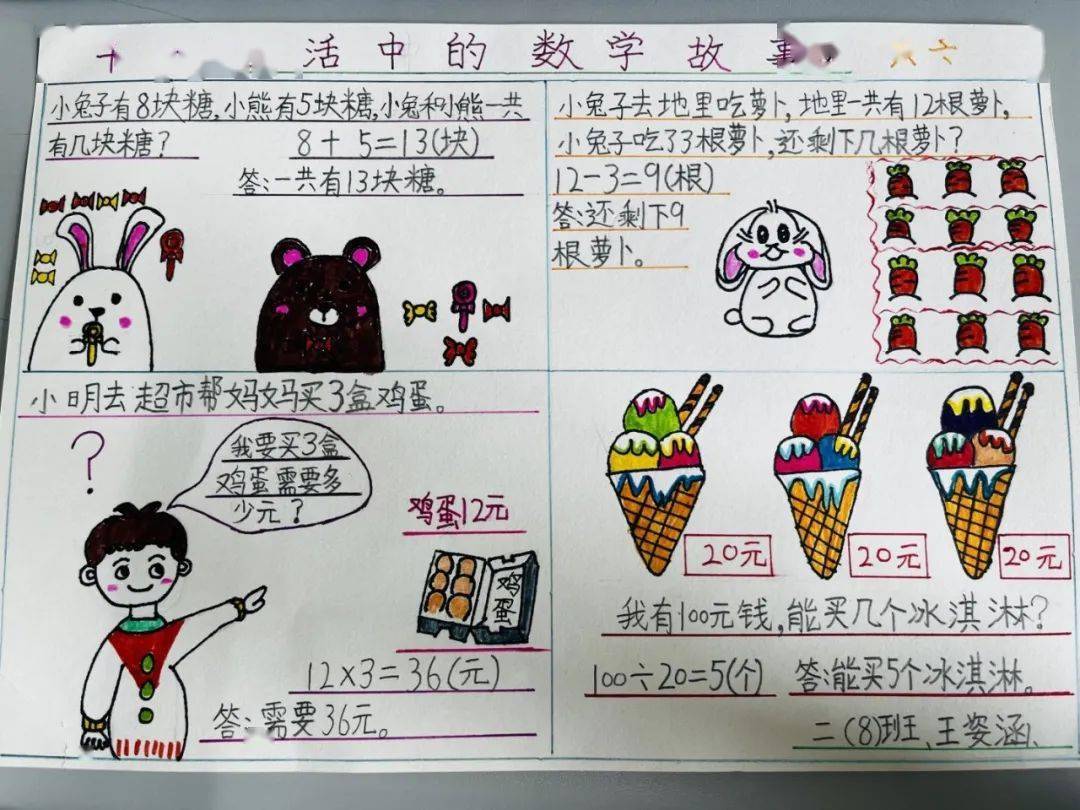 活中的数学故事
小兔子有8块糖,小熊有5块糖,小兔和小熊一共
有几块糖?
8+5=13(块)
答:一共有13块糖。
小兔子去地里吃萝卜,地里一共有12根萝卜,
小兔子吃了3根萝卜,还剩下几根萝卜?
12-3=9(根)
答:还剩下9
根萝卜。
小明去超市帮妈妈买3盒鸡蛋。
?
我要买3盒
鸡蛋需要多
少元?
鸡蛋12元
鸡蛋
12×3=36(元)
答:需要36元。
20元
20元
20元
我有100元钱,能买几个冰淇淋?
100÷20=5(个)
答:能买5个冰淇淋。
二(8)班、王姿涵、